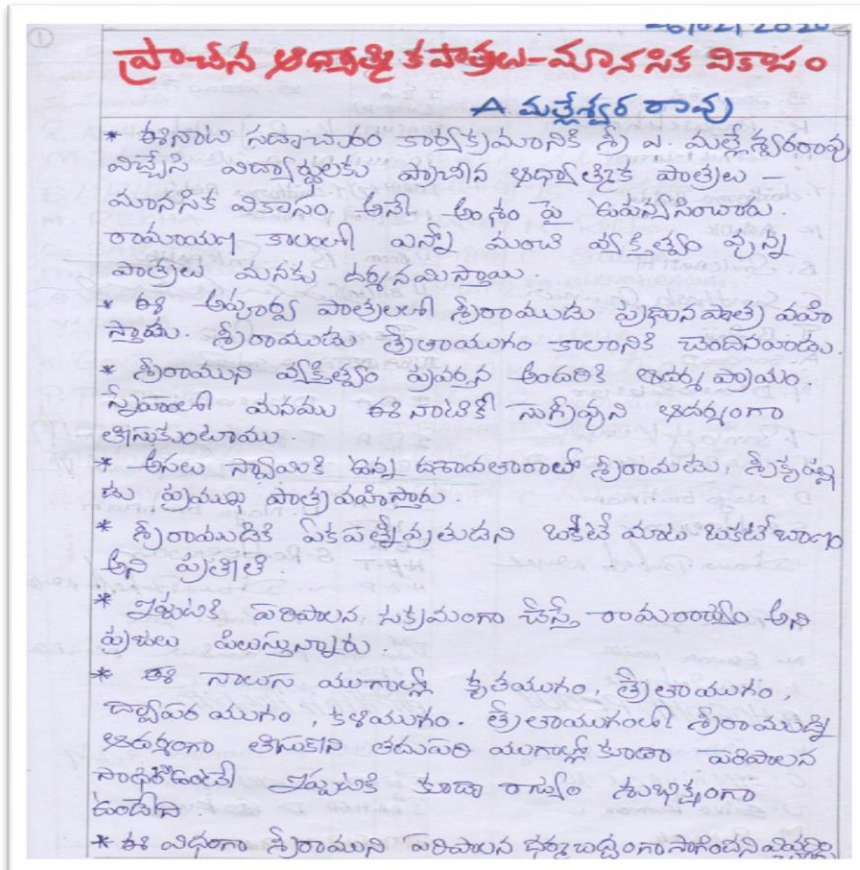 ప్రాచీన ఆధ్యాత్మిక పాత్రలు-మానసిక వికాసం
A మల్లేశ్వర రావు
* ఈనాటి సదాచారం కార్యక్రమానికి శ్రీ ఎ. మల్లేశ్వరరావు
విచ్చేసి విద్యార్థులకు ప్రాచీన ఆధ్యాత్మిక పాత్రలు -
మానసిక వికాసం అనే అంశం పై ఉపన్యసించారు.
రామాయణ కాలంలో ఎన్నో మంచి వ్యక్తిత్వం వున్న
పాత్రలు మనకు దర్శనమిస్తాయి.
* ఈ అపూర్వ పాత్రలలో శ్రీరాముడు ప్రధానపాత్ర వహి
స్తాడు. శ్రీరాముడు త్రేతాయుగం కాలానికి చెందినవాడు.
* శ్రీరాముని వ్యక్తిత్వం ప్రవర్తన అందరికి ఆదర్శప్రాయం.
స్నేహంలో మనము ఈనాటికీ సుగ్రీవుని ఆదర్శంగా
తీసుకుంటాము.
* అసలు స్వామికి ఉన్న దశావతారాలో శ్రీరామడు, శ్రీకృష్ణ
డు ప్రముఖ పాత్రవహిస్తారు.
* శ్రీరాముడికి ఏకపత్నీవ్రతుడని ఒకటే మాట ఒకటే బాణం
అని ప్రతీతి.
* ఇప్పటికి పరిపాలన సక్రమంగా చేస్తే రామరాజ్యం అని
ప్రజలు పిలుస్తున్నారు.
* ఈ నాలుగు యుగాల్లో కృతయుగం, త్రేతాయుగం,
ద్వాపర యుగం, కళియుగం. త్రేతాయుగంలో శ్రీరాముడ్ని
ఆదర్శంగా తీసుకుని తదుపరి యుగాల్లో కూడా పరిపాలన
ఇప్పటికి కూడా రాజ్యం శుభిక్షంగా
ఉండేది.
* ఈ విధంగా శ్రీరాముని పరిపాలన ధర్మబద్ధంగా